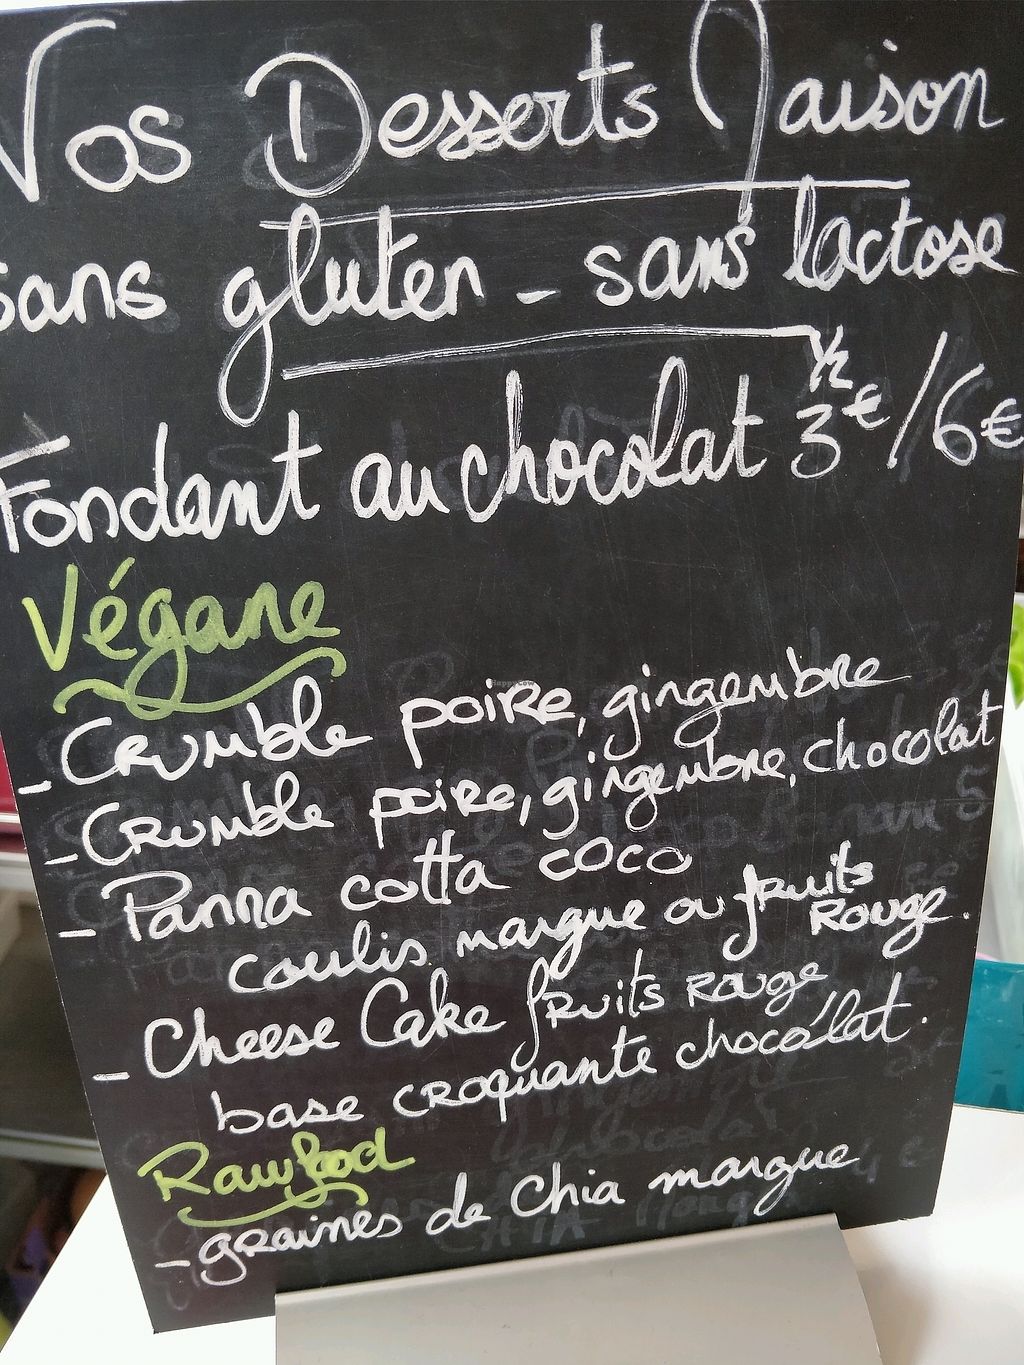 Vos Desserts Maison
sans gluten - sans lactose
Fondant au chocolat 1/2 3€/6€
Végane
- Crumble poire, gingembre
- Crumble poire, gingembre, chocolat
- Panna cotta coco
coulis mangue ou fruits
Rouge.
- Cheese Cake fruits Rouge
base croquante chocolat.
Rawfood
- graines de Chia mangue